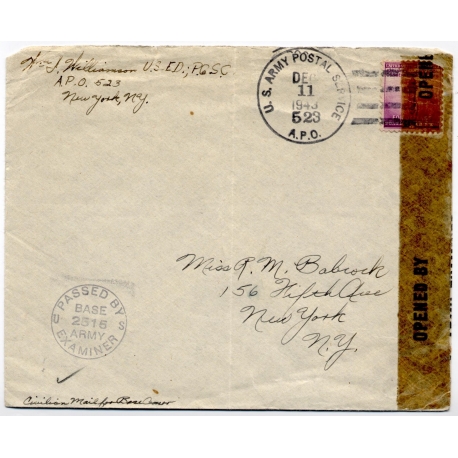 Wm J. Williamson U.S-ED; PGSC
A.P.O. 523
New York, N.Y.
U.S. ARMY POSTAL SERVICE
DEC
11
1943
523
A.P.O.
OPENED
Miss R. M. Babcock
156 Fifth Ave
New York
N.Y.
OPENED BY
PASSED BY
BASE
2516
ARMY
EXAMINER
U S
Civilian Mail for Base Censor